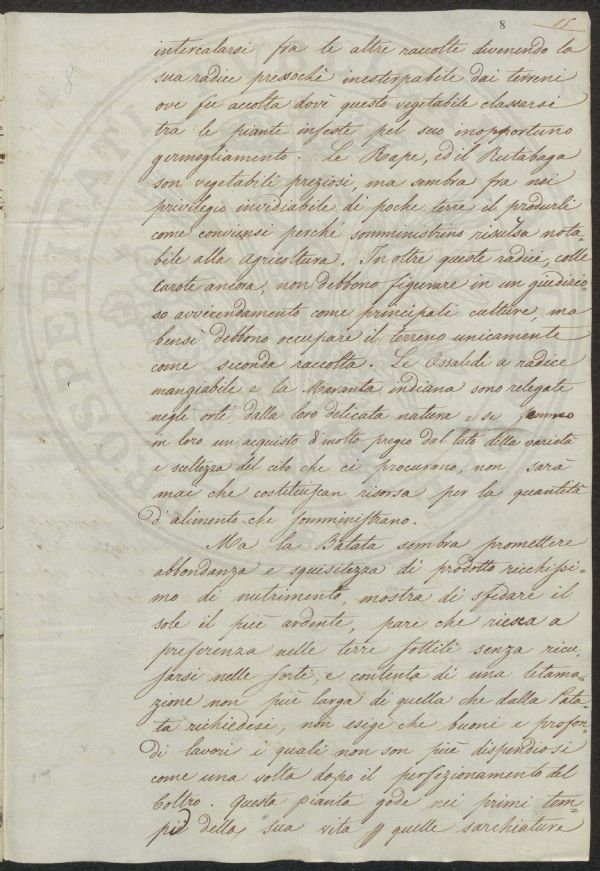 8 15
intercalarsi fra le altre raccolte divenendo la
sua radice pressochè inestirpabile dai terreni
ove fu accolta dovè questo vegetabile classarsi
tra le piante infeste pel suo inopportuno
germogliamento. Le Rape, ed il Rutabaga
son vegetabili preziosi, ma sembra fra noi
privilegio invidiabile di poche terre il produrli
come conviensi perchè somministrino risulsa nota=
bile alla agricoltura. In oltre queste radici, colle
carote ancora, non debbono figurare in un giudizio
so avvicendamento come principali culture, ma
bensì debbono occupare il terreno unicamente
come seconda raccolta. Le Ossalidi a radice
mangiabile e la Maranta indiana sono relegate
negli orti dalla loro delicata natura e se
in loro un acquisto d'molto pregio dal lato della varietà
e sceltezza del cibo che ci procurano, non sarà
mai che costituiscan risorsa per la quantità
d'alimento che somministrano.
Ma la Batata sembra promettere
abbondanza e squisitezza di prodotto ricchissi=
mo di nutrimento, mostra di sfidare il
sole il più ardente, pare che riesca a
preferenza nelle terre sottili senza ricu=
sarsi nelle forti, e contenta di una letama=
zione non più larga di quella che dalla Pata=
ta richiedesi, non esige che buoni e profon=
di lavori i quali non son più dispendiosi
come una volta dopo il perfezionamento del
Coltro. Questa pianta gode nei primi tem=
pi della sua vita quelle sarchiature
PROSPERITATI PUBLICAE